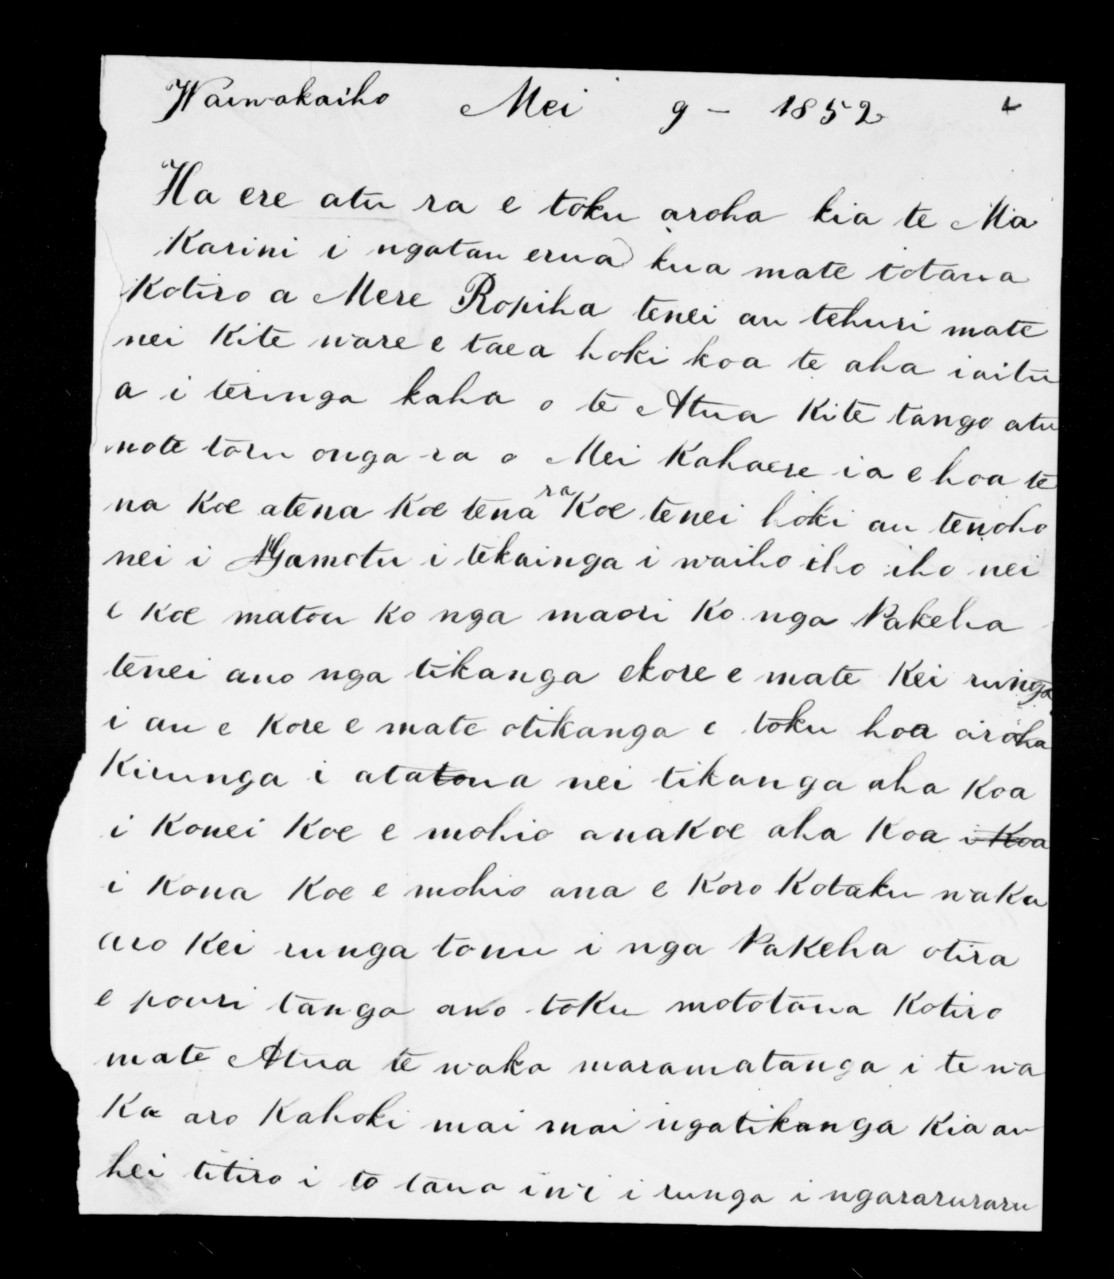 Waiwakaiho Mei 9 – 1852
Ha ere atu ra e toku aroha kia te Ma
Karini i ngatau erua) kua mate totaua
Kotiro a Mere Ropiha tenei au tehuri mate
nei Kite ware e taea hoki koa te aha iaitu
a i teringa kaha o te Atua Kite tango atu
note toru onga ra o Mei Kahaere ia e hoa te
na Koe atena Koe tena ra Koe tenei hoki au tenoho
nei i Ngamotu i tekainga i waiho iho iho nei
e Koe matou ko nga maori Ko nga Pakeha
tenei ano nga tikanga ekore e mate Kei runga
i au e Kore e mate otikanga e toku hoa aroha
Kirunga i atatoua nei tikanga aha Koa
i Konei Koe e mohio anaKoe aha Koa i Koa
i Kona Koe e mohio ana e Koro Kotaku waka
aro Kei runga tonu i nga Pakeha otira
e pouri tanga ano toKu mototaua Kotiro
mate Atua te waka maramatanga i te wa
Ka aro Kahoki mai mai ngatikanga Kia au
hei titiro i to taua iwi i runga i ngararuraru